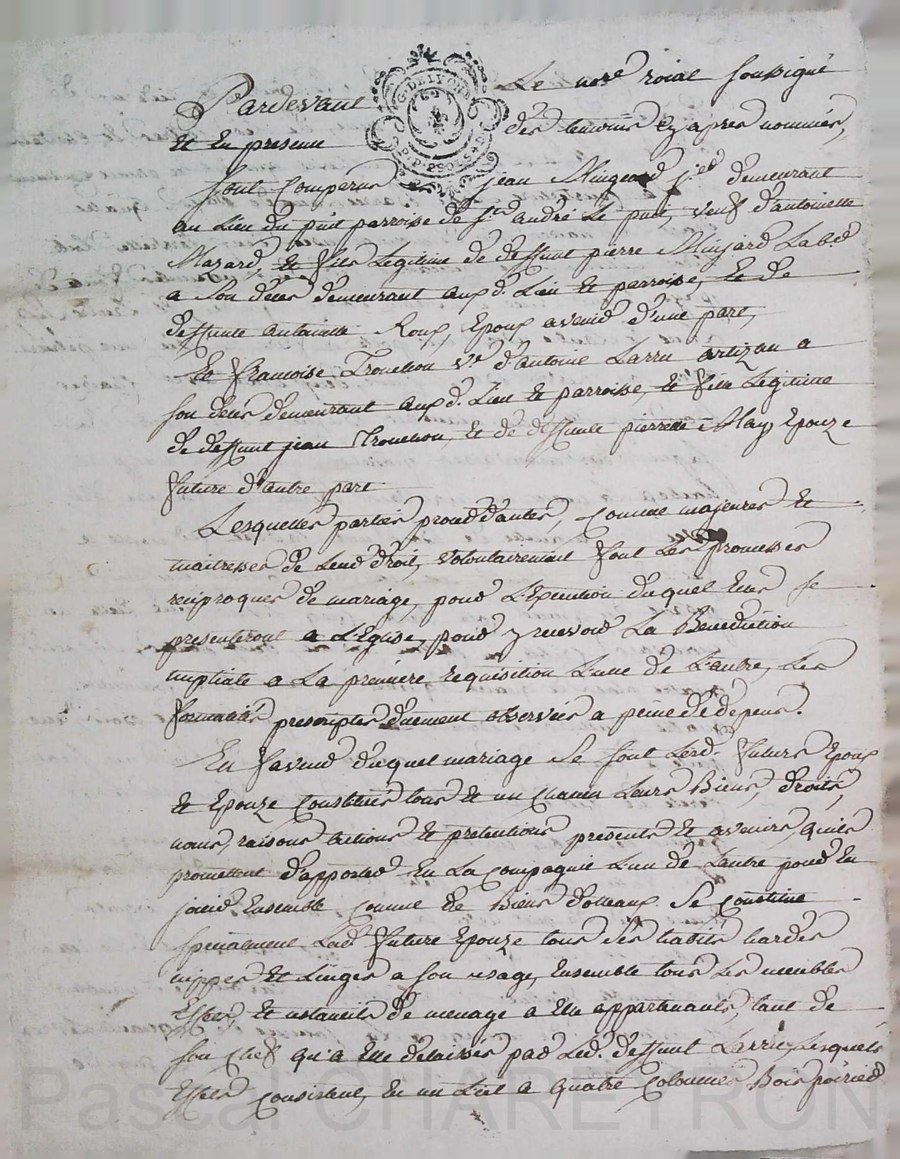 Pardevant Le no.re roial soussigné
et en presence des temoins cy apres nommés,
sont comparus jean Minjard demeurant
au Lieu du puit parroisse de s.t andré Le puit, veuf d'antoinette
Mazard et fils Legitime de deffunt pierre Minjard Lab.r
a son deces demeurant aux d. Lieu et parroisse, et de
deffunte antoinette Roux, Epoux avenir d'une part,
Et françoise Tronchon v.e d'antoine Larru artizan a
son deces demeurant aux d. Lieu et parroisse, et fille Legitime
de deffunt jean Tronchon, et de deffunte pierrette May Epouze
future d'autre part
Lesquelles parties procedantes, comme majeures et
maitresses de Leur droit, volontairement font Les promesses
reciproques de mariage, pour L'Execution duquel Elles se
presenteront a L'Eglise, pour y recevoir La Benediction
nuptiale a La premiere requisition L'une de L'autre, Les
formalités prescriptes duement observées a peine de depens.
En faveur duquel mariage se sont Lesd. futurs Epoux
et Epouze constitués tous et un chacun Leurs Biens, droits,
noms, raisons actions et pretentions presents et avenirs, qu'ils
promettent d'apporter En La compagnie L'un de L'autre pour En
jouir Ensemble comme de Biens dotteaux. se constitue
specialement Lad. future Epouze tous ses habits hardes
nippes et Linges a son usage, Ensemble tous Les meubles
Effets, et ustancils de menage a Elle appartenants, tant de
son chef qu'a Elle delaissés par Led. deffunt Larru Lesquels
Effets consistent, En un Lict a quatre colonnes Bois poirier
Pascal CHAREYRON